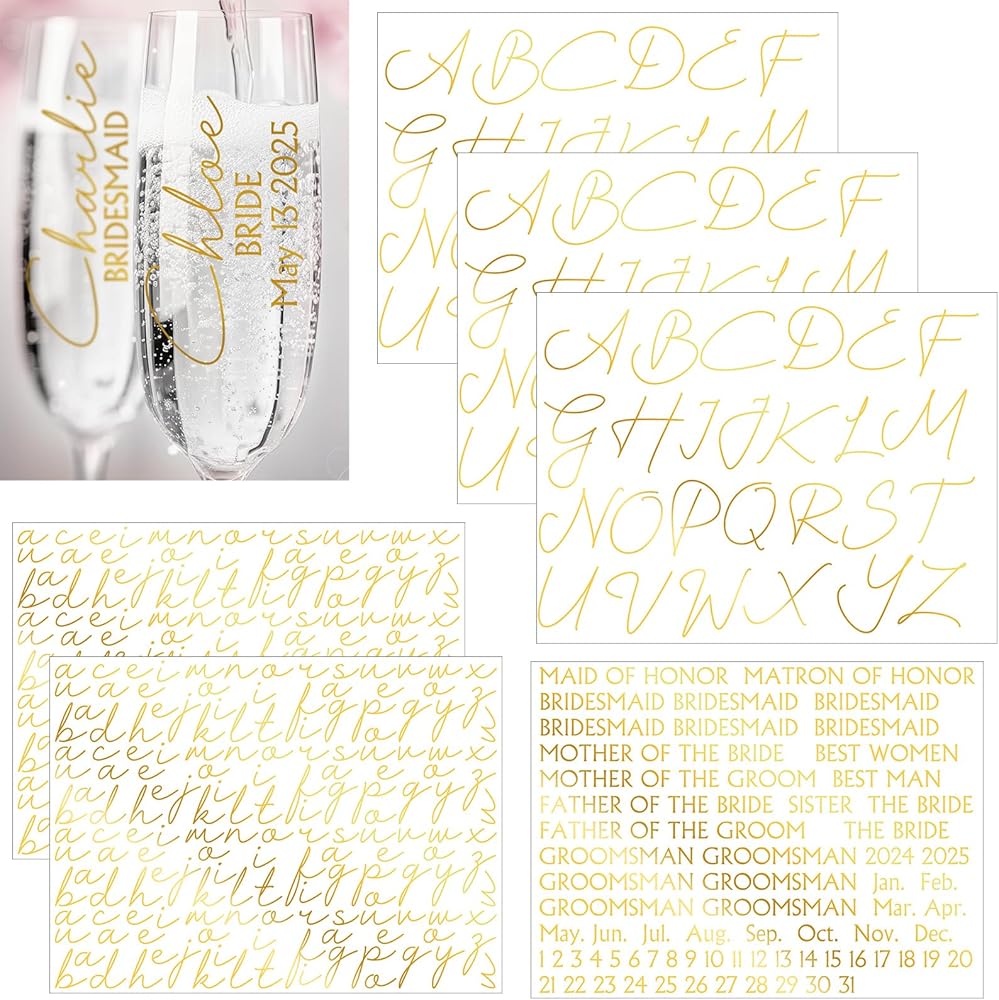 Charlie
BRIDESMAID
Chloe
BRIDE
May 13 2025
A B C D E F
G H I J K L M
N
U
A B C D E F
G H I J K L M
N
U
A B C D E F
G H I J K L M
N O P Q R S T
U V W X Y Z
a c e i m n o r s u v w x
u a e o i a e o z
b d h k l t
a c e i m n o r s u v w x
u a e o i a e o
a c e i m n o r s u v w x
u a e o i a e o z
b d h k l t
a c e i m n o r s u v w x
u a e o i a e o z
b d h k l t
a c e i m n o r s u v w x
u a e o i a e o z
b d h k l t
a c e i m n o r s u v w x
u a e o i a e o z
b d h k l t
MAID OF HONOR MATRON OF HONOR
BRIDESMAID BRIDESMAID BRIDESMAID
BRIDESMAID BRIDESMAID BRIDESMAID
MOTHER OF THE BRIDE BEST WOMEN
MOTHER OF THE GROOM BEST MAN
FATHER OF THE BRIDE SISTER THE BRIDE
FATHER OF THE GROOM THE BRIDE
GROOMSMAN GROOMSMAN 2024 2025
GROOMSMAN GROOMSMAN Jan. Feb.
GROOMSMAN GROOMSMAN Mar. Apr.
May. Jun. Jul. Aug. Sep. Oct. Nov. Dec.
1 2 3 4 5 6 7 8 9 10 11 12 13 14 15 16 17 18 19 20
21 22 23 24 25 26 27 28 29 30 31